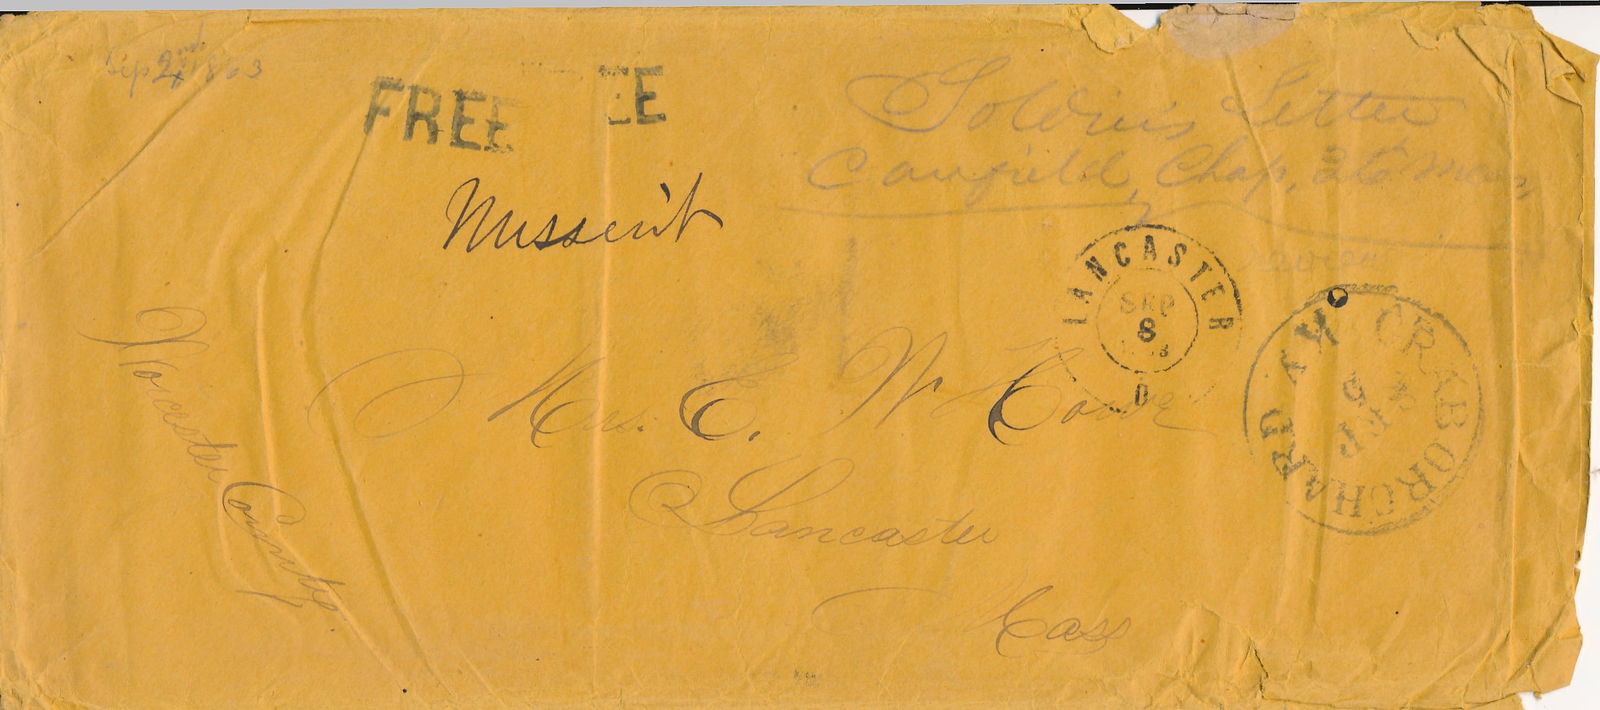 Sep 2 1863
FREE
EE
Soldiers Letter
Canfield, Chap, 36 Mass,
Missent
LANCASTER
SEP
8
O
CRAB ORCHARD KY
SEP
Mrs. E. W
Lancaster
Mass
Worcester County